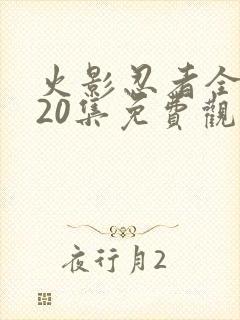 火影忍者全
20集免費觀
夜行月2